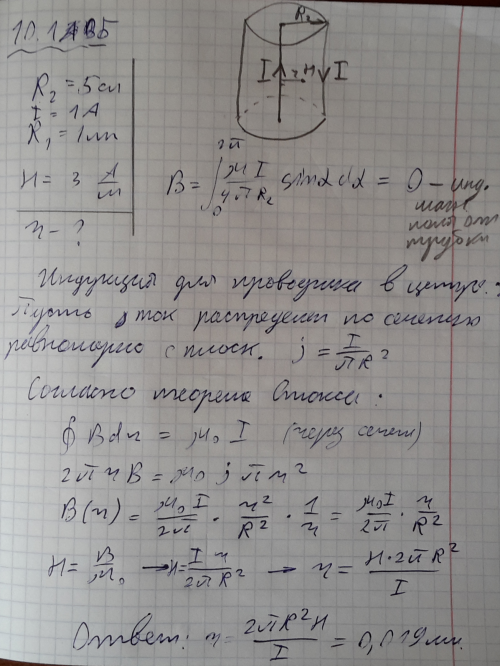 10.15
R₂
R₂ = 5 см
I = 1 А
R₁ = 1 мм
H = 3 А/м
r - ?
I r H I
B = ∫₀^2π μ I / 4 π R₂ sin α dα = 0 – инд.
магн
поля от
трубки
Индукция для проводника в центре:
Пусть ток распределен по сечению
равномерно с плоск. j = I / πR²
Согласно теореме Стокса:
∮ B dr = μ₀ I (через сечен)
2 π r B = μ₀ j π r²
B(r) = μ₀ I / 2π · r² / R² · 1 / r = μ₀ I / 2π · r / R²
H = B / μ₀ → H = I r / 2 π R² → r = H · 2 π R² / I
Ответ: r = 2πR²H / I = 0,019 мм.